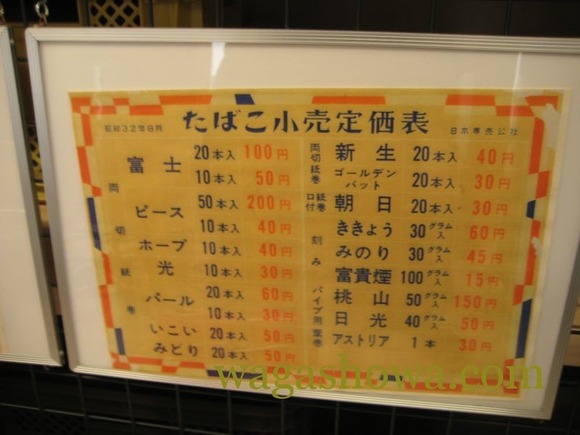 たばこ小売定価表
昭和32年8月
日本専売公社
両切紙巻
富士 20本入 100円
10本入 50円
ピース 50本入 200円
10本入 40円
ホープ 10本入 40円
光 10本入 30円
パール 20本入 60円
10本入 30円
いこい 20本入 50円
みどり 20本入 50円
両切紙巻
新生 20本入 40円
ゴールデンバット 20本入 30円
口付紙巻
朝日 20本入 30円
刻み
ききょう 30グラム入 60円
みのり 30グラム入 45円
富貴煙 100グラム入 15円
パイプ用
桃山 50グラム入 150円
日光 40グラム入 50円
葉巻
アストリア 1本 30円
wagashowa.com